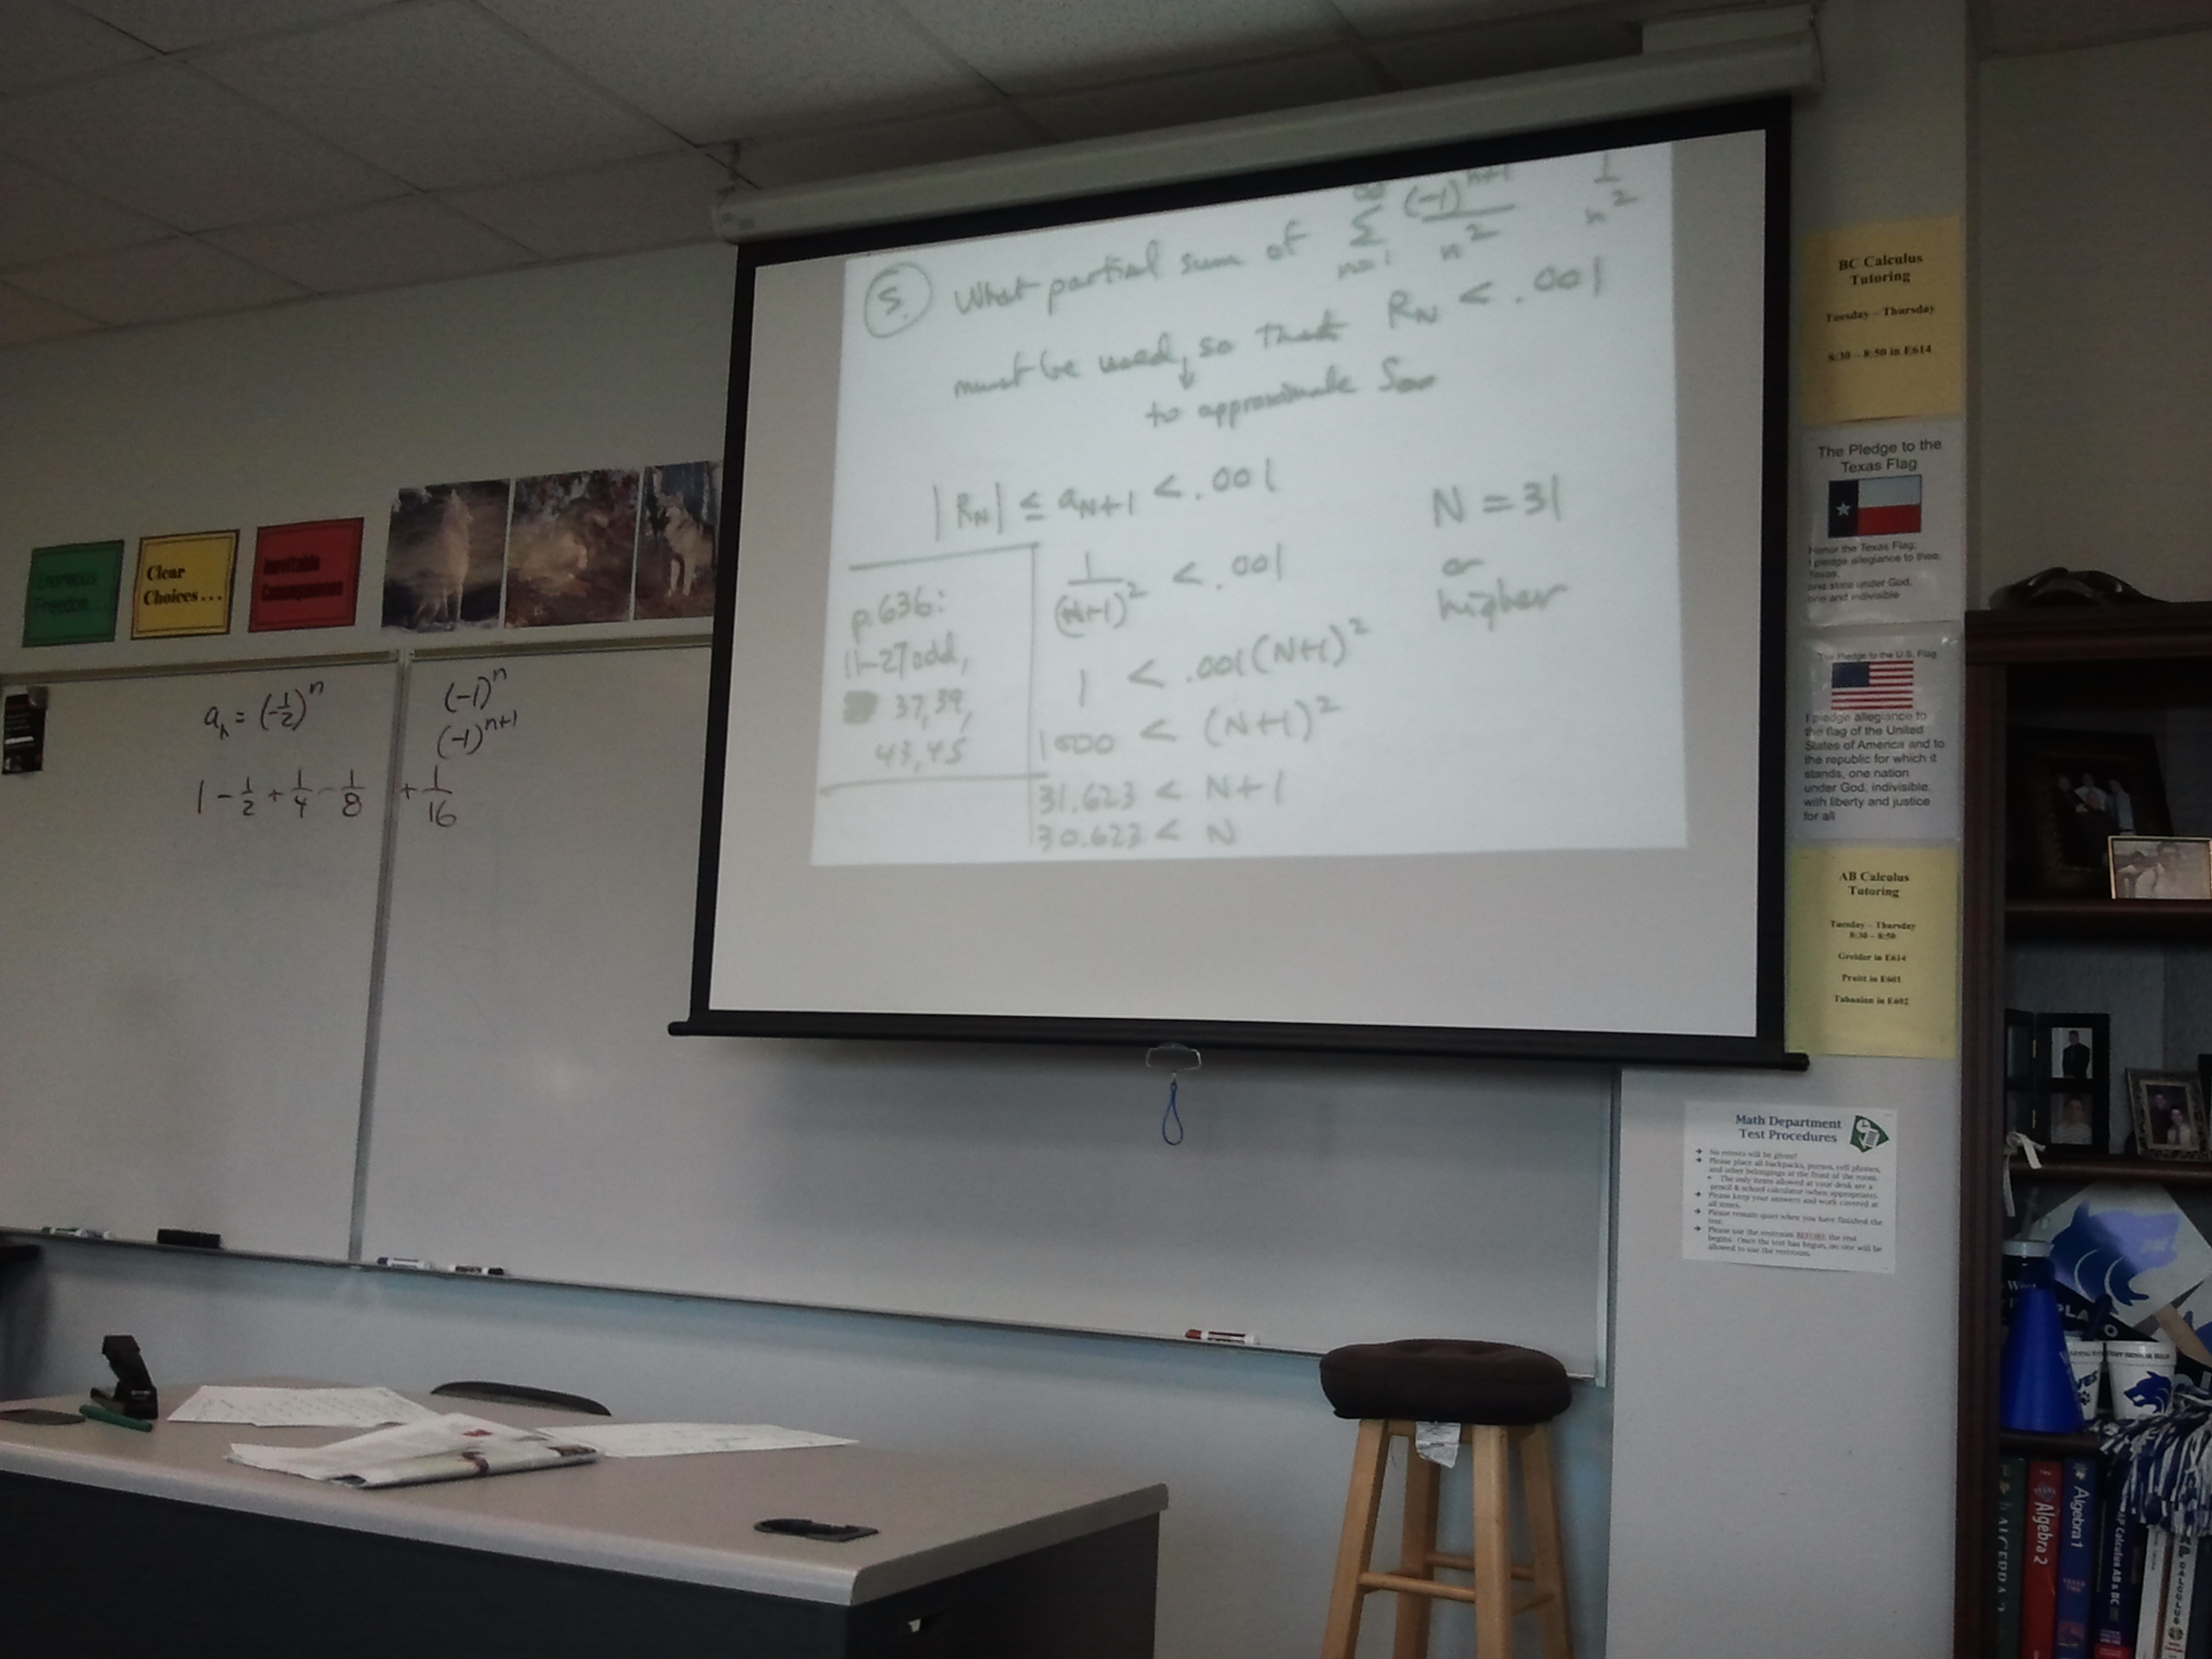 5. What partial sum of ∑ n=1 ∞ (-1)^n+1 / n^2    1 / n^2
must be used, so that R_N < .001
to approximate S∞
|R_N| ≤ a_N+1 < .001
1 / (N+1)^2 < .001
1 < .001(N+1)^2
1000 < (N+1)^2
31.623 < N+1
30.623 < N
N = 31
or
higher
p.636:
11-27 odd,
37, 39,
43, 45
Enormous
Freedom...
Clear
Choices...
Inevitable
Consequences
a_n = (-1/2)^n
1 - 1/2 + 1/4 - 1/8 + 1/16
(-1)^n
(-1)^n+1
BC Calculus
Tutoring
Tuesday – Thursday
8:30 – 8:50 in E614
The Pledge to the
Texas Flag
Honor the Texas Flag;
I pledge allegiance to thee,
Texas,
one state under God,
one and indivisible
The Pledge to the U.S. Flag
I pledge allegiance to
the flag of the United
States of America and to
the republic for which it
stands, one nation
under God, indivisible,
with liberty and justice
for all
AB Calculus
Tutoring
Tuesday – Thursday
8:30 – 8:50
Greider in E614
Pruitt in E601
Tabanian in E602
Math Department
Test Procedures
No retests will be given!
Please place all backpacks, purses, cell phones,
and other belongings at the front of the room.
The only items allowed at your desk are a
pencil & school calculator (when appropriate).
Please keep your answers and work covered at
all times.
Please remain quiet when you have finished the
test.
Please use the restroom BEFORE the test
begins. Once the test has begun, no one will be
allowed to use the restroom.
PLA
Algebra 2
Algebra 1
AP Calculus AB & BC
CALCULUS